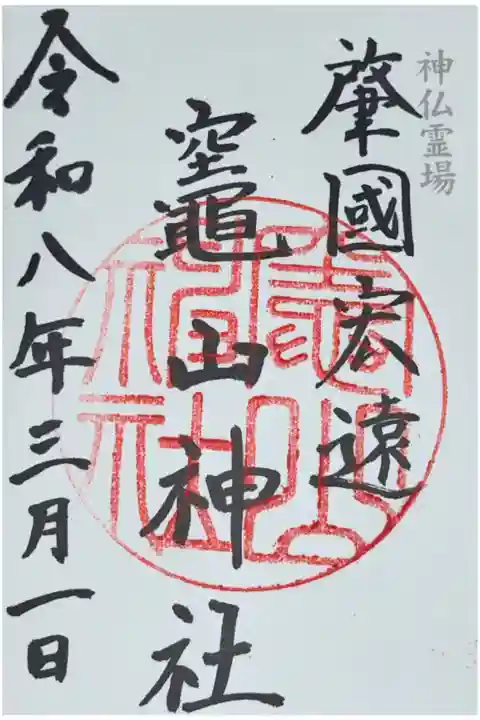 神仏霊場
肇國宏遠
竈山神社
令和八年三月一日